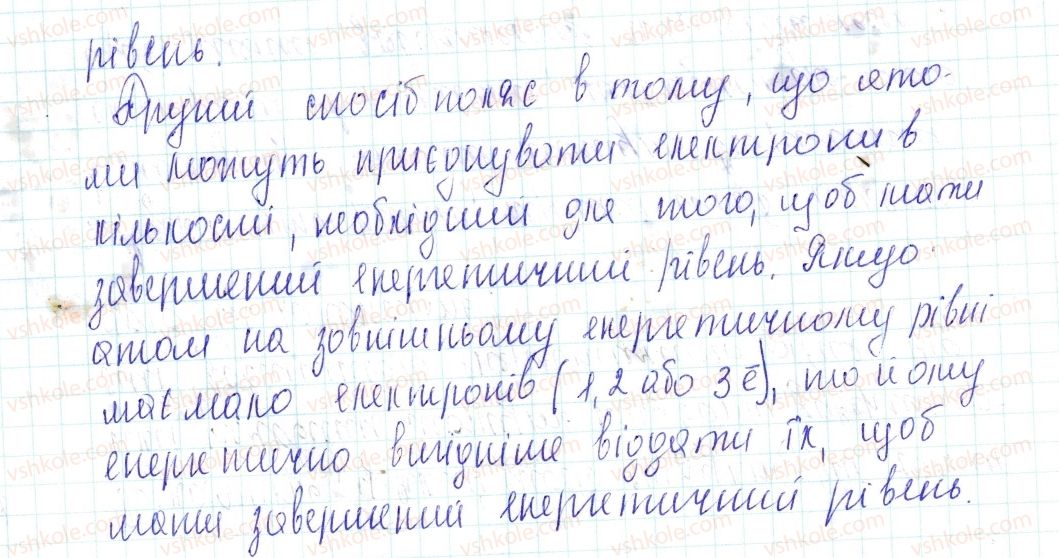 рівень.
Другий спосіб полягає в тому, що ато-
ми можуть приєднувати електрони в
кількості, необхідній для того, щоб мати
завершений енергетичний рівень. Якщо
атом на зовнішньому енергетичному рівні
має мало електронів (1, 2 або 3 ē), то йому
енергетично вигідніше віддати їх, щоб
мати завершений енергетичний рівень.